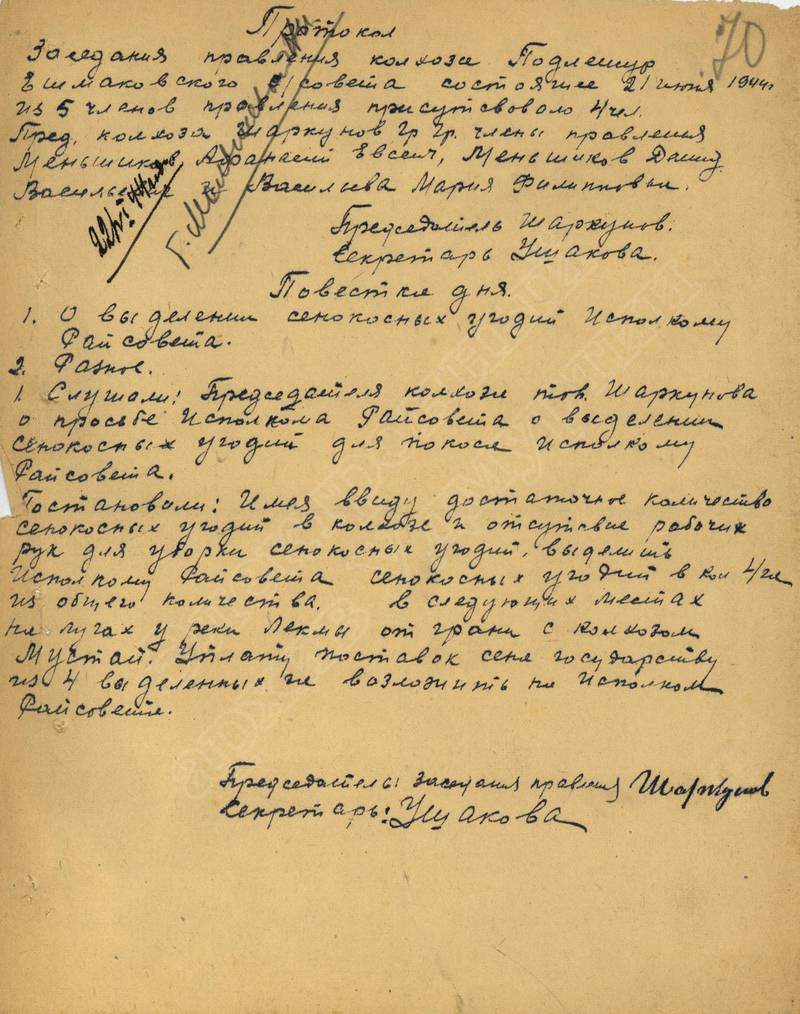 70
Протокол
Заседания правления колхоза Подлешур
Ешмаковского с/совета состоящее 21 июня 1944г
из 5 членов правления присутсвовало 4 чел.
Пред. колхоза Шаркунов Гр. Гр. члены правления
Меньшиков Афанасий Евсеич, Меньшиков Давид
Васильевич и Васильева Мария Филипповна.
22/VI
Председатель Шаркунов.
Секретарь Ушакова.
Повестка дня.
1. О выделении сенокосных угодий Исполкому
Райсовета.
2. Разное.
1. Слушали: Председателя колхоза тов. Шаркунова
о просьбе Исполкома Райсовета о выделении
сенокосных угодий для покоса Исполкому
Райсовета.
Постановили: Имея ввиду достаточное количество
сенокосных угодий в колхозе и отсутствие рабочих
рук для уборки сенокосных угодий, выделить
Исполкому Райсовета сенокосных угодий в кол 4 га
из общего количества. в следующих местах
на лугах у реки Лекмы от грани с колхозом
Мустай. Уплату поставок сена государству
из 4 выделенных га возложить на Исполком
Райсовета.
Председатель заседания правления Шаркунов
Секретарь: Ушакова